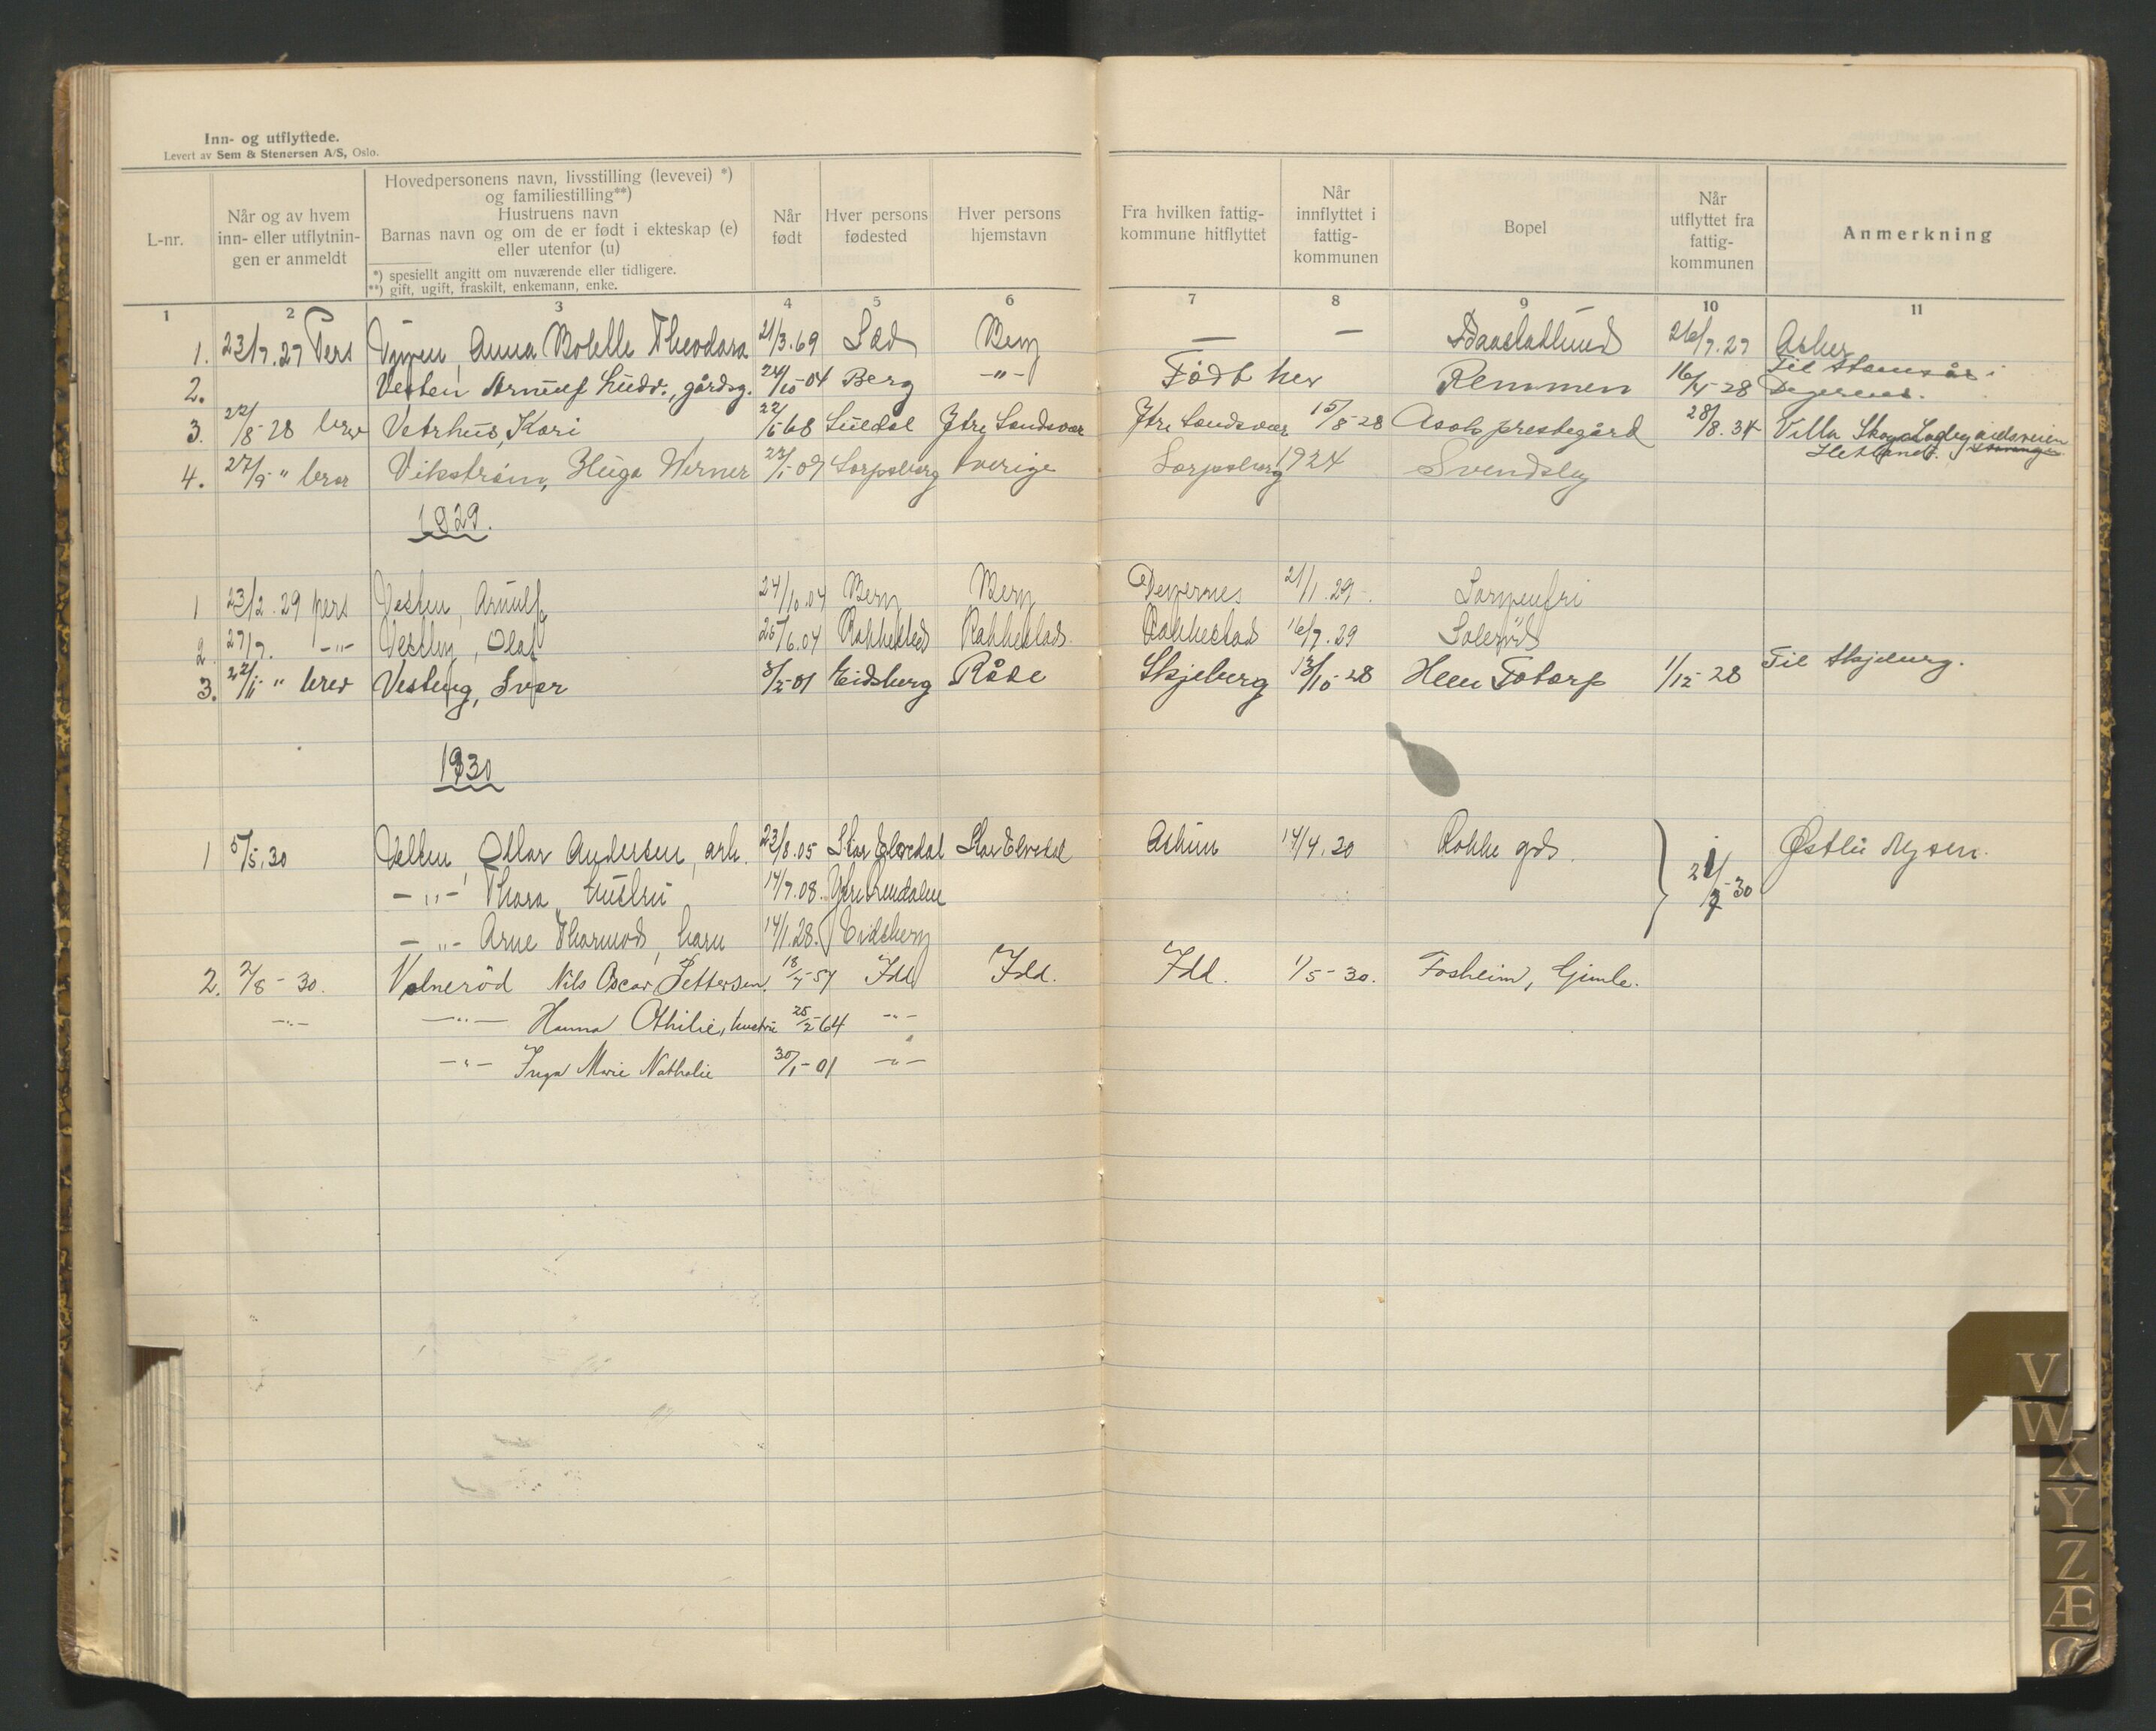 Inn- og utflyttede.
Levert av Sem & Stenersen A/S, Oslo.
L-nr.
Når og av hvem
inn- eller utflytnin-
gen er anmeldt
Hovedpersonens navn, livsstilling (levevei) *)
og familiestilling**)
Hustruens navn
Barnas navn og om de er født i ekteskap (e)
eller utenfor (u)
*) spesiellt angitt om nuværende eller tidligere.
**) gift, ugift, fraskilt, enkemann, enke.
Når
født
Hver persons
fødested
Hver persons
hjemstavn
Fra hvilken fattig-
kommune hitflyttet
Når
innflyttet i
fattig-
kommunen
Bopel
Når
utflyttet fra
fattig-
kommunen
Anmerkning
1 2 3 4 5 6 7 8 9 10 11
1. 23/7.27 Pers Anna Bolette Theodora 21/3.69 Berg — — 26/7.27 Asker
2. Vesten Arnulf Ludv., gårdsg. 24/10-04 Berg -"- Født her Remmen 16/4-28 Til i Degernes.
3. 22/8-28 brev Vetrhus, Kari 22/5 68 Suldal Ytre Sandsvær Ytre Sandsvær 15/8-28 Asak prestegård 28/8.34 Villa
Hetland.
4. 27/9 " brev Vikstrøm, Hugo Werner 23/1-07 Sarpsborg Sverige Sarpsborg 1924 Svendsby
1929.
1 23/2.29 pers Vesten, Arnulf 24/10.04 Berg Berg Degernes 21/1.29. Sorgenfri
2. 27/7. -"- Vestby, Olaf 25/6.04 Rakkestad Rakkestad. Rakkestad 16/7.29 Solerød
3. 22/11 " brev Vesteng, Ivar 3/2-01 Eidsberg Råde Skjeberg 13/10-28 Heen Totorp 1/12-28 Til Skjeberg.
1930
1 5/5.30 Velten, Ottar Andersen, arb. 23/8.05 Stor Elvedal Stor Elvedal Askim 14/4.30 Rokke gds. 30 Østli Mysen.
-"- Thora, hustru 14/7.08. Ytre Rendalen
-"- Arne Thormod, barn 14/1.28. Eidsberg
2. 2/8-30. Volnerød Nils Oscar Pettersen. 18/4-57 Idd Idd. Idd. 1/5-30. Fosheim, Gimle.
-"- -"- Hanna Othilie, hustru 25/2-64 -"-
-"- Inga Marie Nathalie 30/1-01 -"-
V
W
X
Y
Z
Æ